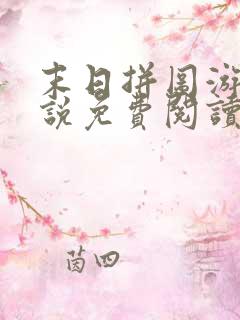 末日拼图游
說免費閱讀
茵四